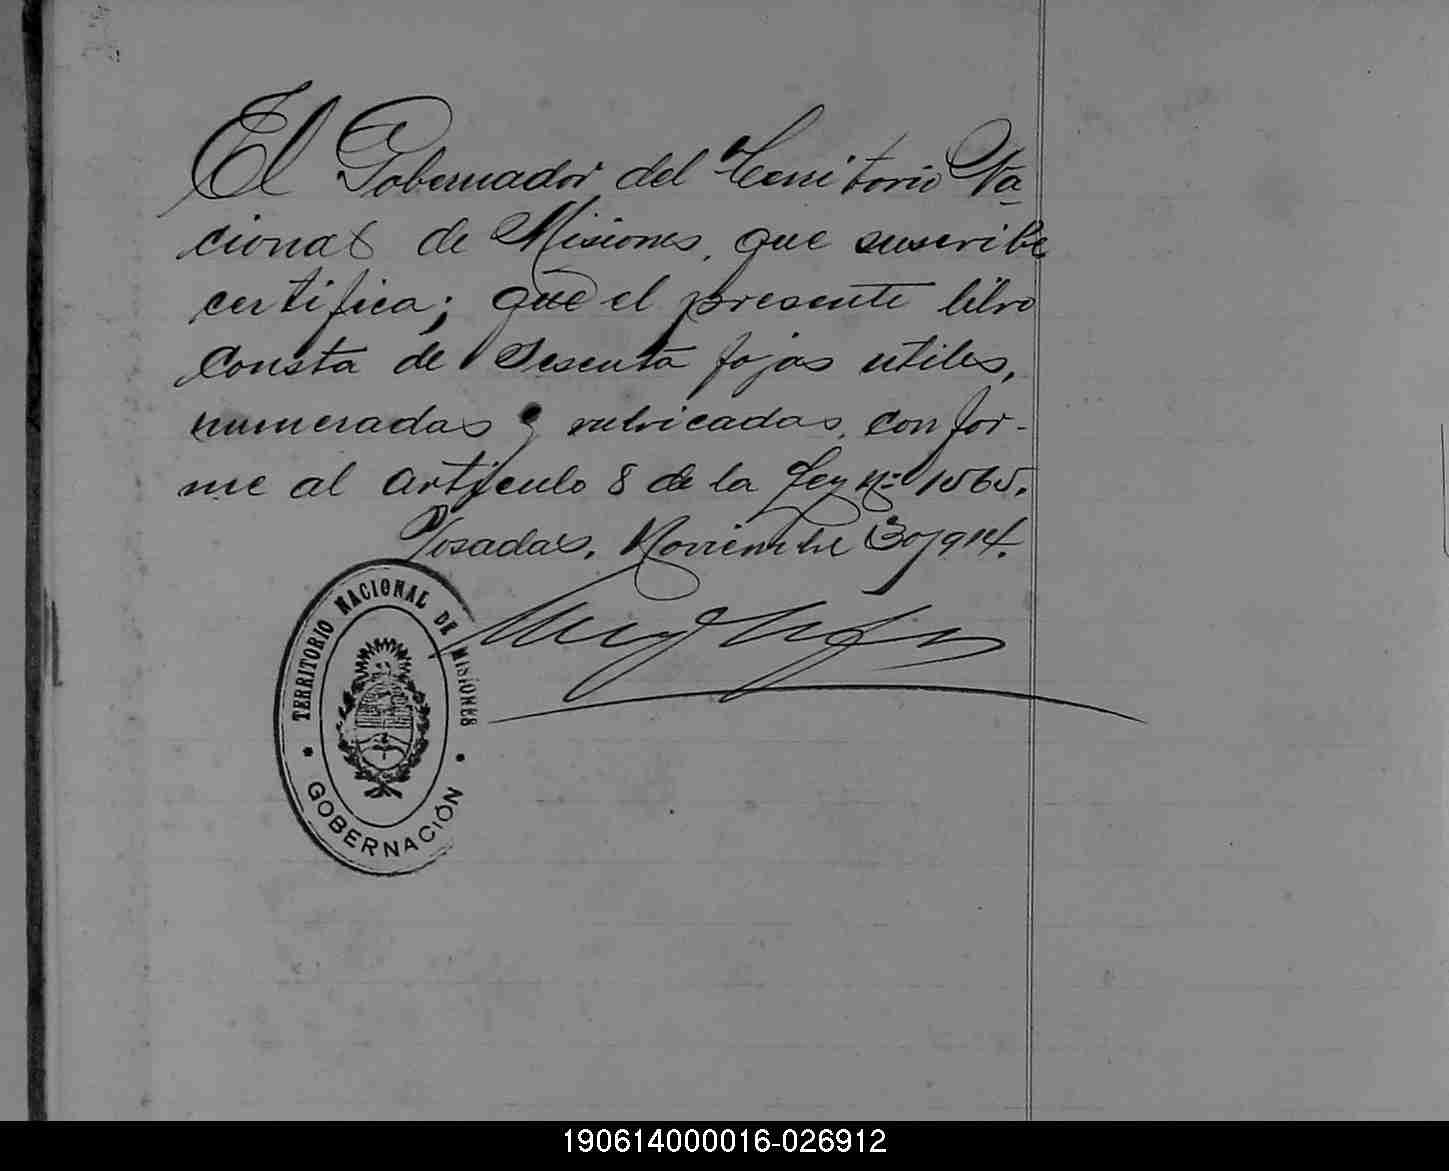 El Gobernador del Territorio Na-
cional de Misiones, que suscribe
certifica; que el presente libro
consta de sesenta fojas utiles,
numeradas y rubricadas, confor-
me al artículo 8 de la Ley Nº 1565.
Posadas, Noviembre 30/914.
TERRITORIO NACIONAL DE MISIONES
GOBERNACIÓN
190614000016-026912